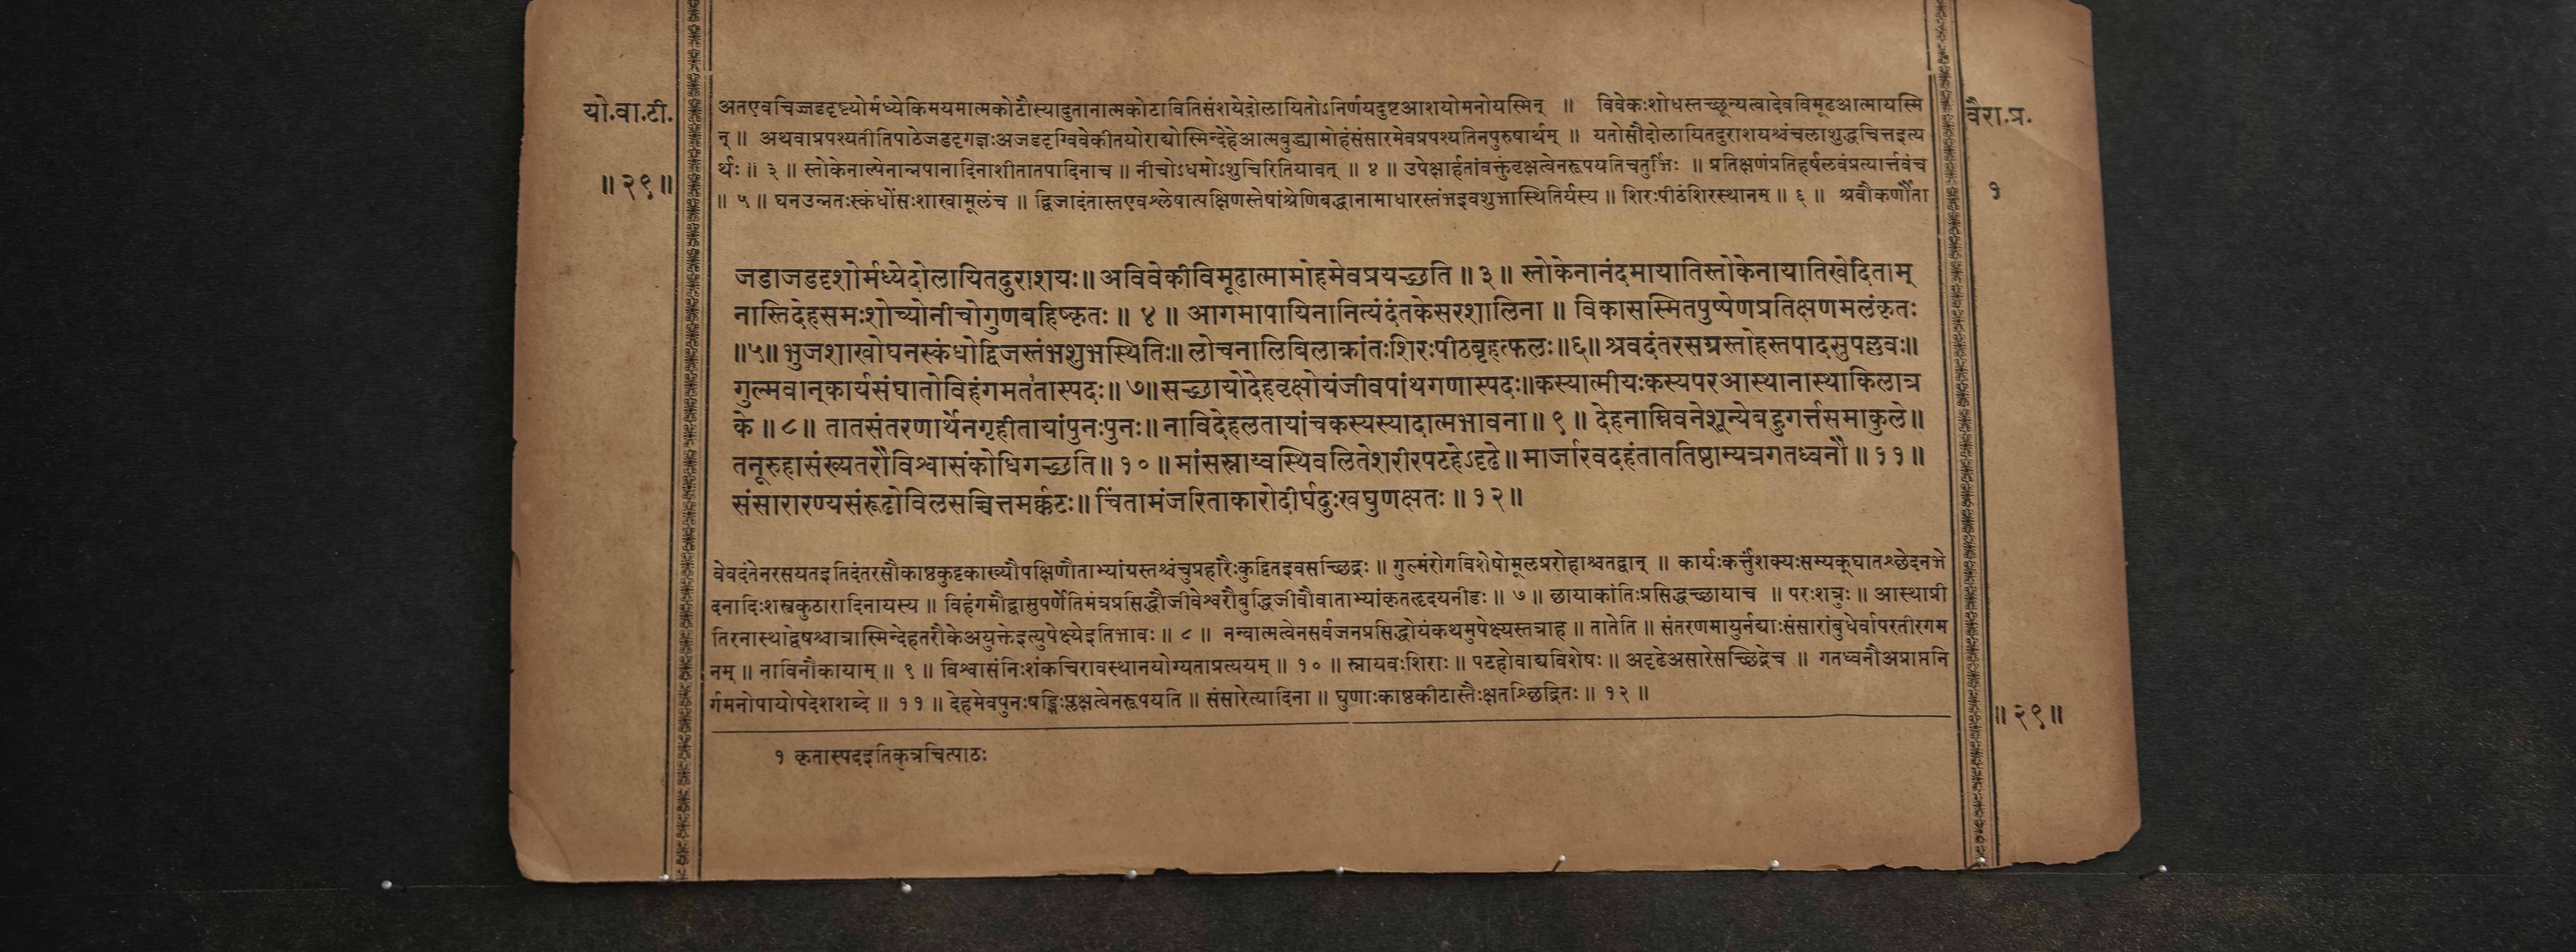 यो.वा.टी.
॥२९॥
अतएवचिज्जडदृष्ट्योर्मध्येकिमयमात्मकोटौस्यादुतानात्मकोटावितिसंशयेदोलायितोऽनिर्णयदुष्टआशयोमनोयस्मिन् ॥ विवेकःशोधस्तच्छून्यत्वादेवविमूढआत्मायस्मि
न् ॥ अथवाप्रपश्यतीतिपाठेजडदृगज्ञःअजडदृग्विवेकीतयोराद्योस्मिन्देहेआत्मबुद्ध्यामोहंसंसारमेवप्रपश्यतिनपुरुषार्थम् ॥ यतोसौदोलायितदुराशयश्चंचलाशुद्धचित्तइत्य
र्थः ॥ ३ ॥ स्तोकेनाल्पेनान्नपानादिनाशीतातपादिनाच ॥ नीचोऽधमोऽशुचिरितियावत् ॥ ४ ॥ उपेक्षार्हतांवक्तुंवृक्षत्वेनरूपयतिचतुर्भिः ॥ प्रतिक्षणंप्रतिहर्षलवंप्रत्यार्त्तवंच
॥ ५ ॥ घनउन्नतःस्कंधोंसःशाखामूलंच ॥ द्विजादंतास्तएवश्लेषात्पक्षिणस्तेषांश्रेणिबद्धानामाधारस्तंभइवशुभास्थितिर्यस्य ॥ शिरःपीठंशिरस्थानम् ॥ ६ ॥ श्रवौकर्णौता
वैरा.प्र.
१
जडाजडदृशोर्मध्येदोलायितदुराशयः॥ अविवेकीविमूढात्मामोहमेवप्रयच्छति ॥ ३ ॥ स्तोकेनानंदमायातिस्तोकेनायातिखेदिताम्
नास्तिदेहसमःशोच्योनीचोगुणबहिष्कृतः ॥ ४ ॥ आगमापायिनानित्यंदंतकेसरशालिना ॥ विकासस्मितपुष्पेणप्रतिक्षणमलंकृतः
॥५॥ भुजशाखोघनस्कंधोद्विजस्तंभशुभस्थितिः॥ लोचनालिबिलाक्रांतःशिरःपीठबृहत्फलः॥६॥ श्रवदंतरसग्रस्तोहस्तपादसुपल्लवः॥
गुल्मवान्कार्यसंघातोविहंगमतंतास्पदः॥ ७॥ सच्छायोदेहवृक्षोयंजीवपांथगणास्पदः॥कस्यात्मीयःकस्यपरआस्थानास्थाकिलात्र
के ॥ ८ ॥ तातसंतरणार्थेनगृहीतायांपुनःपुनः॥ नाविदेहलतायांचकस्यस्यादात्मभावना ॥ ९ ॥ देहनाम्निवनेशून्येबहुगर्त्तसमाकुले॥
तनूरुहासंख्यतरौविश्वासंकोधिगच्छति ॥ १० ॥ मांसस्नाय्वस्थिवलितेशरीरपटहेऽदृढे ॥ मार्जारवदहंताततिष्ठाम्यत्रगतध्वनौ ॥ ११ ॥
संसारारण्यसंरूढोविलसच्चित्तमर्क्कटः॥ चिंतामंजरिताकारोदीर्घदुःखघुणक्षतः ॥ १२ ॥
वेवदंतेनरसयतइतिदंतरसौकाष्ठकुट्टकाख्यौपक्षिणौताभ्यांयस्तश्चंचुप्रहारैःकुट्टितइवसच्छिद्रः ॥ गुल्मंरोगविशेषोमूलप्ररोहाश्चतद्वान् ॥ कार्यःकर्त्तुंशक्यःसम्यक्घातश्छेदनभे
दनादिःशस्त्रकुठारादिनायस्य ॥ विहंगमौद्वासुपर्णेतिमंत्रप्रसिद्धौजीवेश्वरौबुद्धिजीवौवाताभ्यांकृतहृदयनीडः ॥ ७ ॥ छायाकांतिःप्रसिद्धच्छायाच ॥ परःशत्रुः ॥ आस्थाप्री
तिरनास्थाद्वेषश्चात्रास्मिन्देहतरौकेअयुक्तेइत्युपेक्ष्येइतिभावः ॥ ८ ॥ नन्वात्मत्वेनसर्वजनप्रसिद्धोयंकथमुपेक्ष्यस्तत्राह ॥ तातेति ॥ संतरणमायुर्नद्याःसंसारांबुधेर्वापरतीरगम
नम् ॥ नाविनौकायाम् ॥ ९ ॥ विश्वासंनिःशंकचिरावस्थानयोग्यताप्रत्ययम् ॥ १० ॥ स्नायवःशिराः ॥ पटहोवाद्यविशेषः ॥ अदृढेअसारेसच्छिद्रेच ॥ गतध्वनौअप्राप्तनि
र्गमनोपायोपदेशशब्दे ॥ ११ ॥ देहमेवपुनःषड्भिःप्लक्षत्वेनरूपयति ॥ संसारेत्यादिना ॥ घुणाःकाष्ठकीटास्तैःक्षतश्छिद्रितः ॥ १२ ॥
॥२९॥
१ कृतास्पदइतिकुत्रचित्पाठः